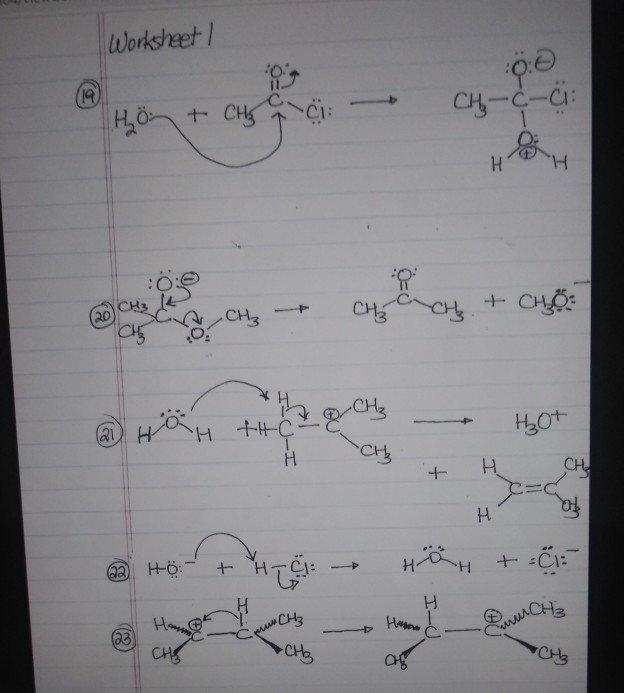 Worksheet 1
19 H₂Ö: + CH₃ C :O: C̈l: → CH₃ — C — C̈l: :Ö: ⊖ O: ⊕ H H
20 :Ö: ⊖ CH₃ CH₃ C O: CH₃ → :O: CH₃ C CH₃ + CH₃Ö:⁻
21 H Ö H + H — C H H — C ⊕ CH₃ CH₃ → H₃O+
+ H H C = C CH₃ CH₃
22 HÖ:⁻ + H — C̈l: → H Ö H + :C̈l:⁻
23 H CH₃ C ⊕ — C H CH₃ CH₃ → H CH₃ C H — C ⊕ CH₃ CH₃